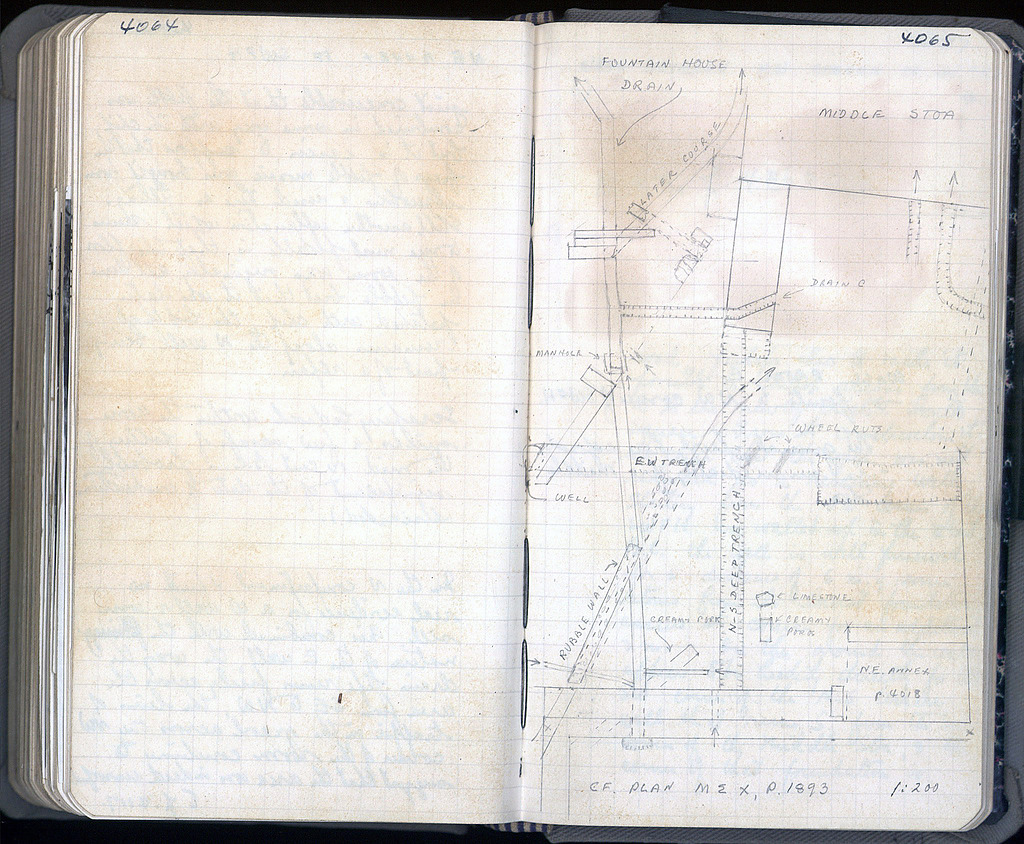 4064
4065
FOUNTAIN HOUSE
DRAIN
MIDDLE STOA
LATER COURSE
DRAIN C
MANHOLE
WHEEL RUTS
E.W TRENCH
WELL
N-S DEEP TRENCH
RUBBLE WALL
C LIMESTONE
CREAMY
POROS
CREAMY POR
N.E. ANNEX
p. 4018
CF. PLAN M Σ X, P. 1893
1:200